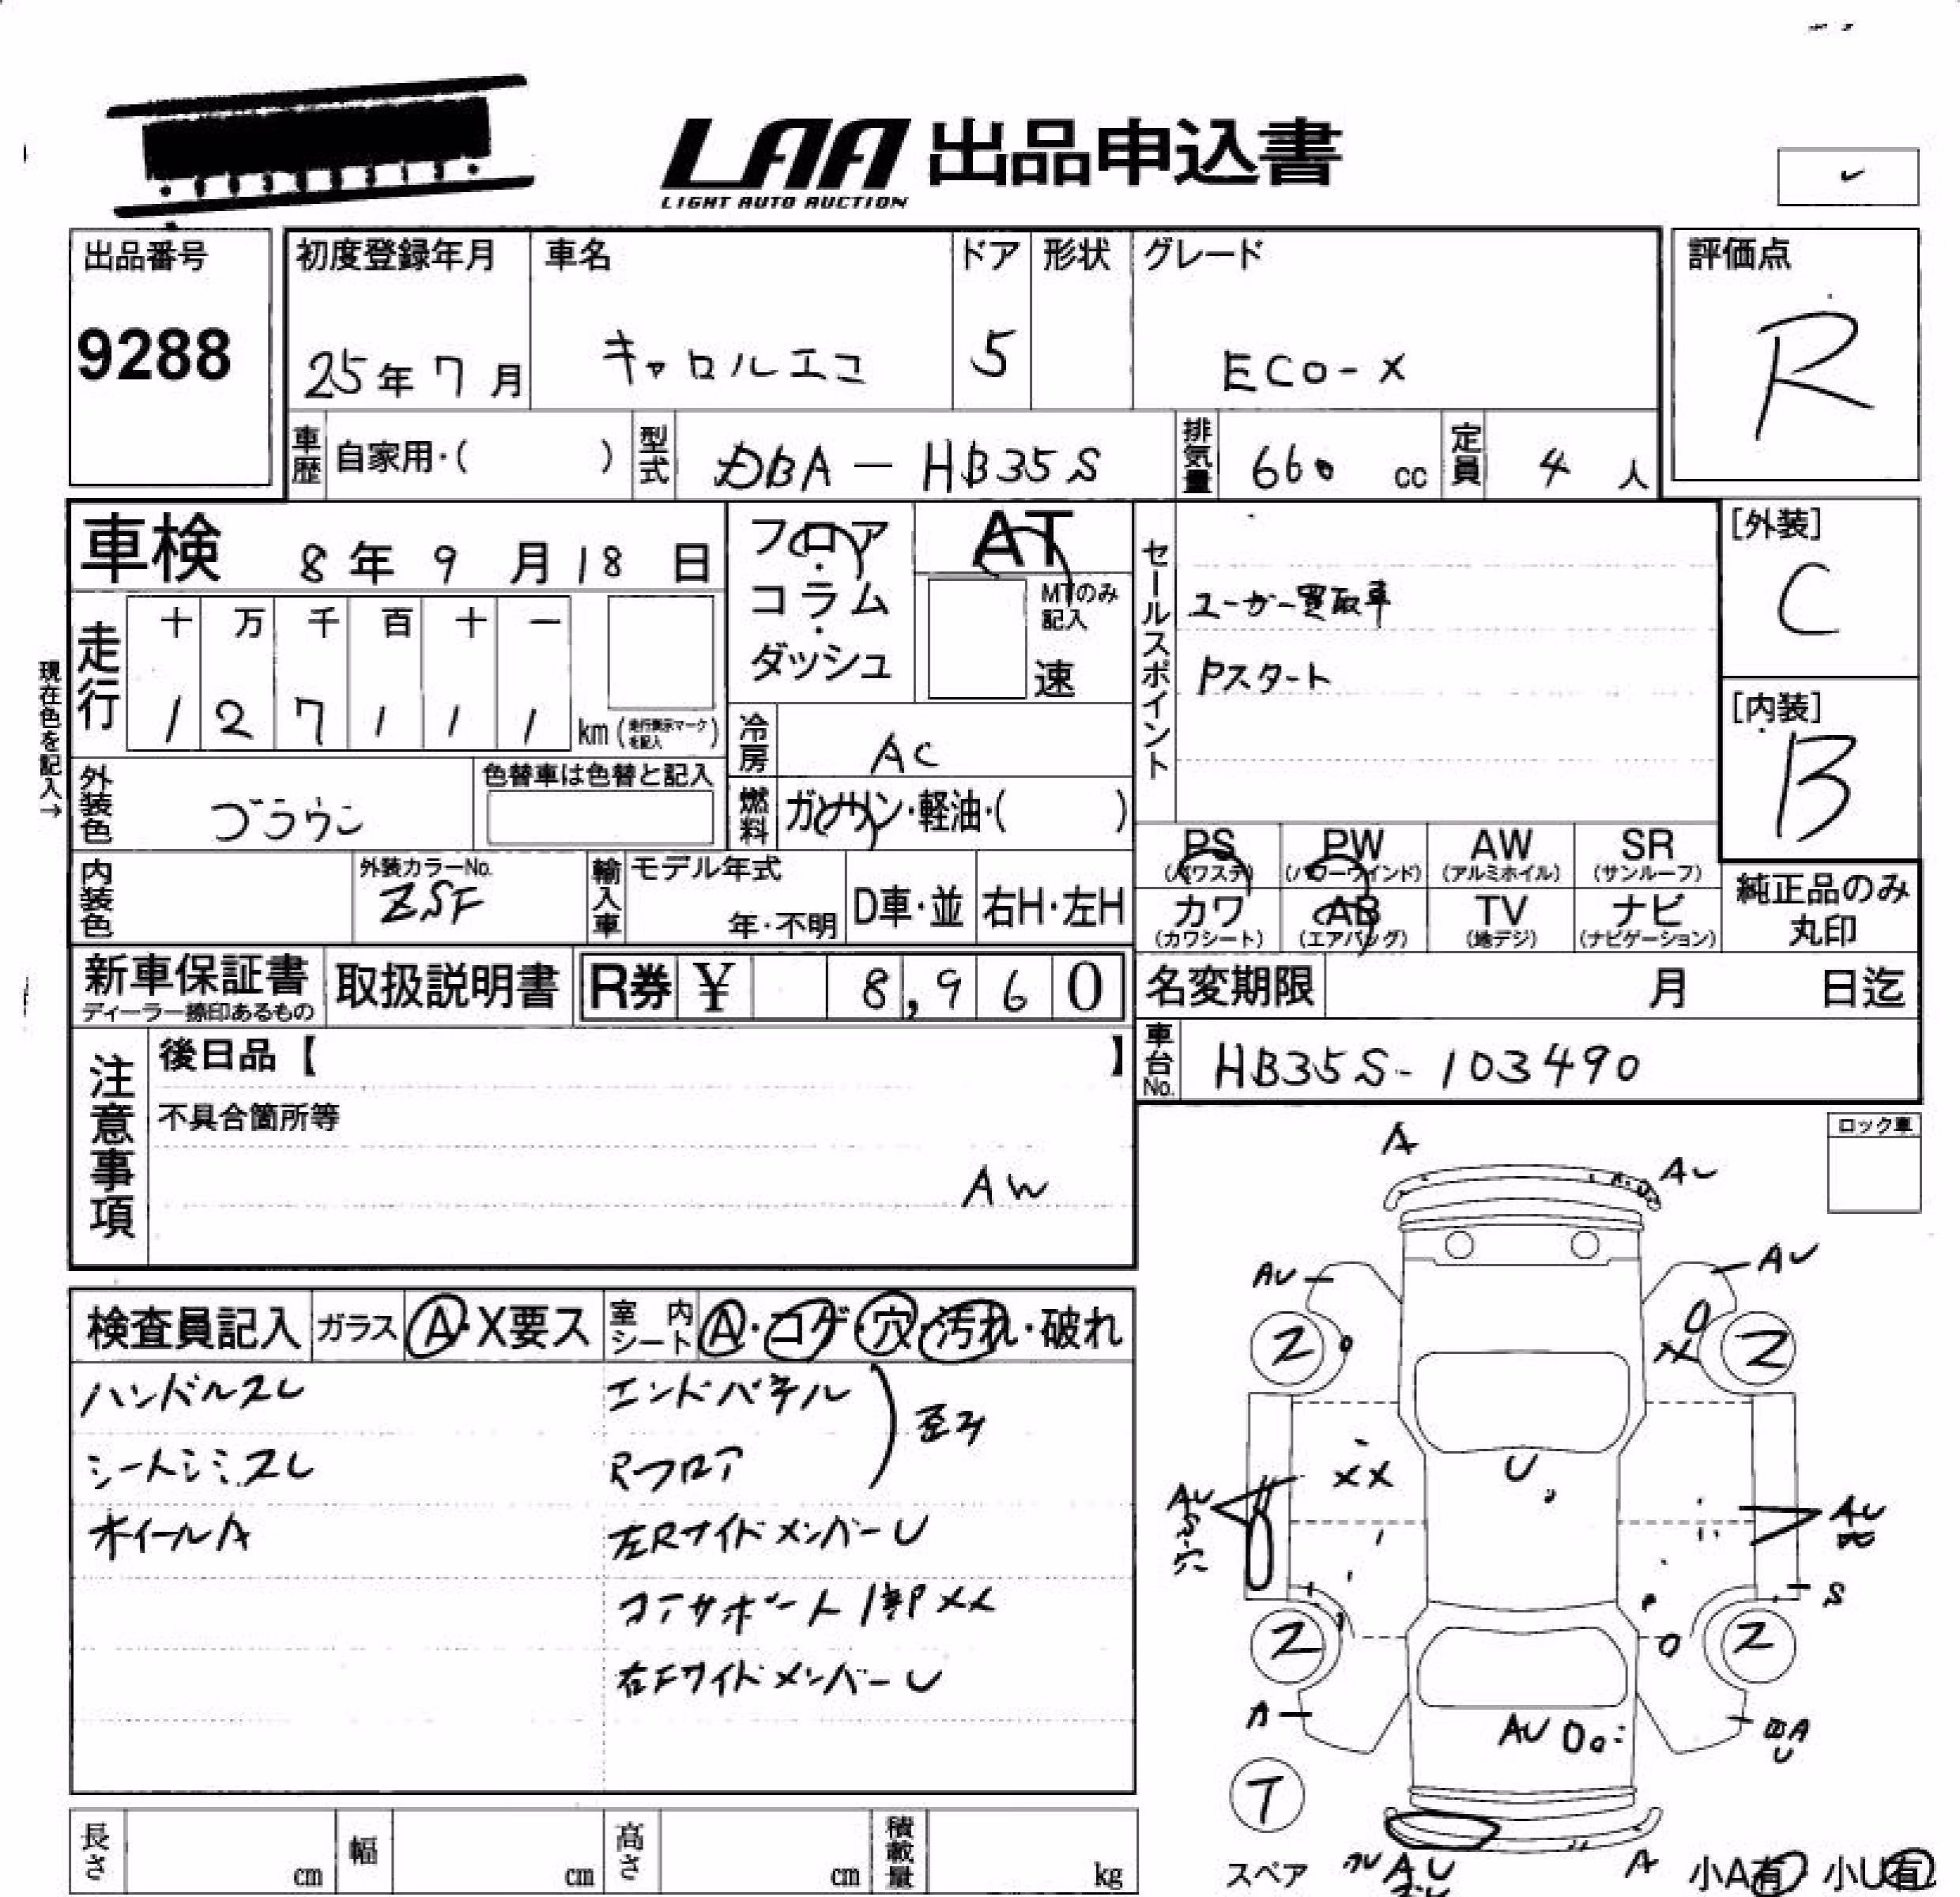 LAA 出品申込書
LIGHT AUTO AUCTION
出品番号
9288
初度登録年月
25年7月
車名
キャロルエコ
ドア
5
形状
グレード
ECO-X
評価点
R
車歴 自家用・( )
型式 DBA-HB35S
排気量 660 cc
定員 4 人
車検 8年9月18日
フロア・コラム・ダッシュ
AT
MTのみ記入
速
セールスポイント
ユーザー買取車
Pスタート
[外装]
C
[内装]
B
現在色を記入→
走行
十 万 千 百 十 一
1 2 7 1 1 1 km (走行表示マークを記入)
冷房 AC
燃料 ガソリン・軽油・( )
外装色 ブラウン
色替車は色替と記入
内装色
外装カラーNo.
ZSF
輸入車
モデル年式
年・不明
D車・並
右H・左H
PS (パワステ)
PW (パワーウインド)
AW (アルミホイル)
SR (サンルーフ)
カワ (カワシート)
AB (エアバッグ)
TV (地デジ)
ナビ (ナビゲーション)
純正品のみ丸印
新車保証書
ディーラー捺印あるもの
取扱説明書
R券 ¥ 8,960
名変期限 月 日迄
車台No. HB35S-103490
注意事項
後日品【 】
不具合箇所等
AW
ロック車
検査員記入
ガラス A・X要ス
室内シート A・コゲ・穴・汚れ・破れ
ハンドルスレ
シートシミ.スレ
ホイールA
エンドパネル
Rフロア
歪み
左RサイドメンバーU
コアサポート1部XX
右FサイドメンバーU
A
AU
AU
AU
2
2
XX
XX
U
AU
穴
AU
S
2
2
A
AU
T
スペア
AU
A
小A有 小U有
長さ cm
幅 cm
高さ cm
積載量 kg